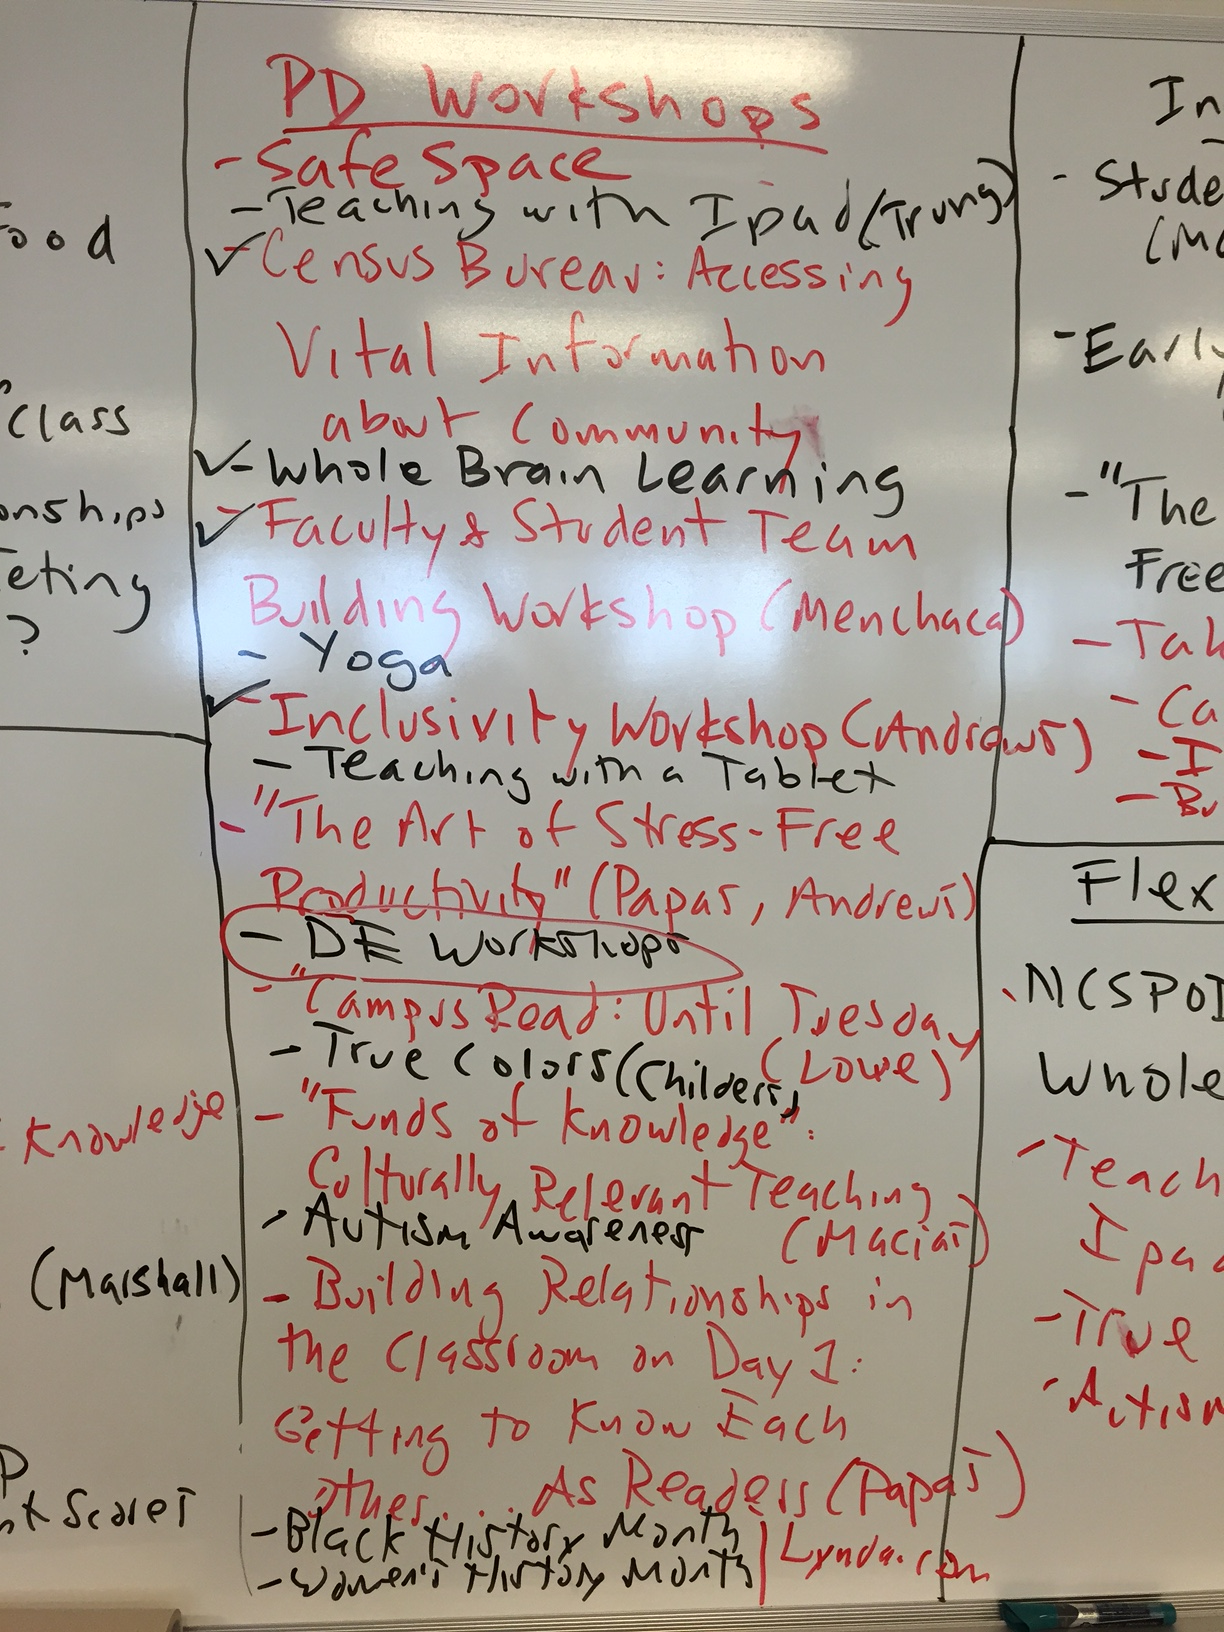 PD Workshops
- Safe Space
- Teaching with Ipad (Trung)
✓- Census Bureau: Accessing
Vital Information
about Community
✓- Whole Brain Learning
✓- Faculty & Student Team
Building Workshop (Menchaca)
- Yoga
✓- Inclusivity Workshop (Andrews)
- Teaching with a Tablet
- "The Art of Stress-Free
Productivity" (Papas, Andrews)
- DE Workshops
- "Campus Read: Until Tuesday
(Lowe)
- True Colors (Childers)
- "Funds of Knowledge":
Culturally Relevant Teaching
(Macias)
- Autism Awareness
- Building Relationships in
the Classroom on Day 1:
Getting to Know Each
other.... As Readers (Papas)
- Black History Month
- Women's History Month | Lynda.com
Food
class
onships
eting
?
Knowledge
(Marshall)
P
nt Scores
In
- Stude
(Ma
- Early
- "The
Free
- Tak
- Ca
- I
- Bu
Flex
- NCSPOD
Whole
- Teach
Ipad
- True
- Autism